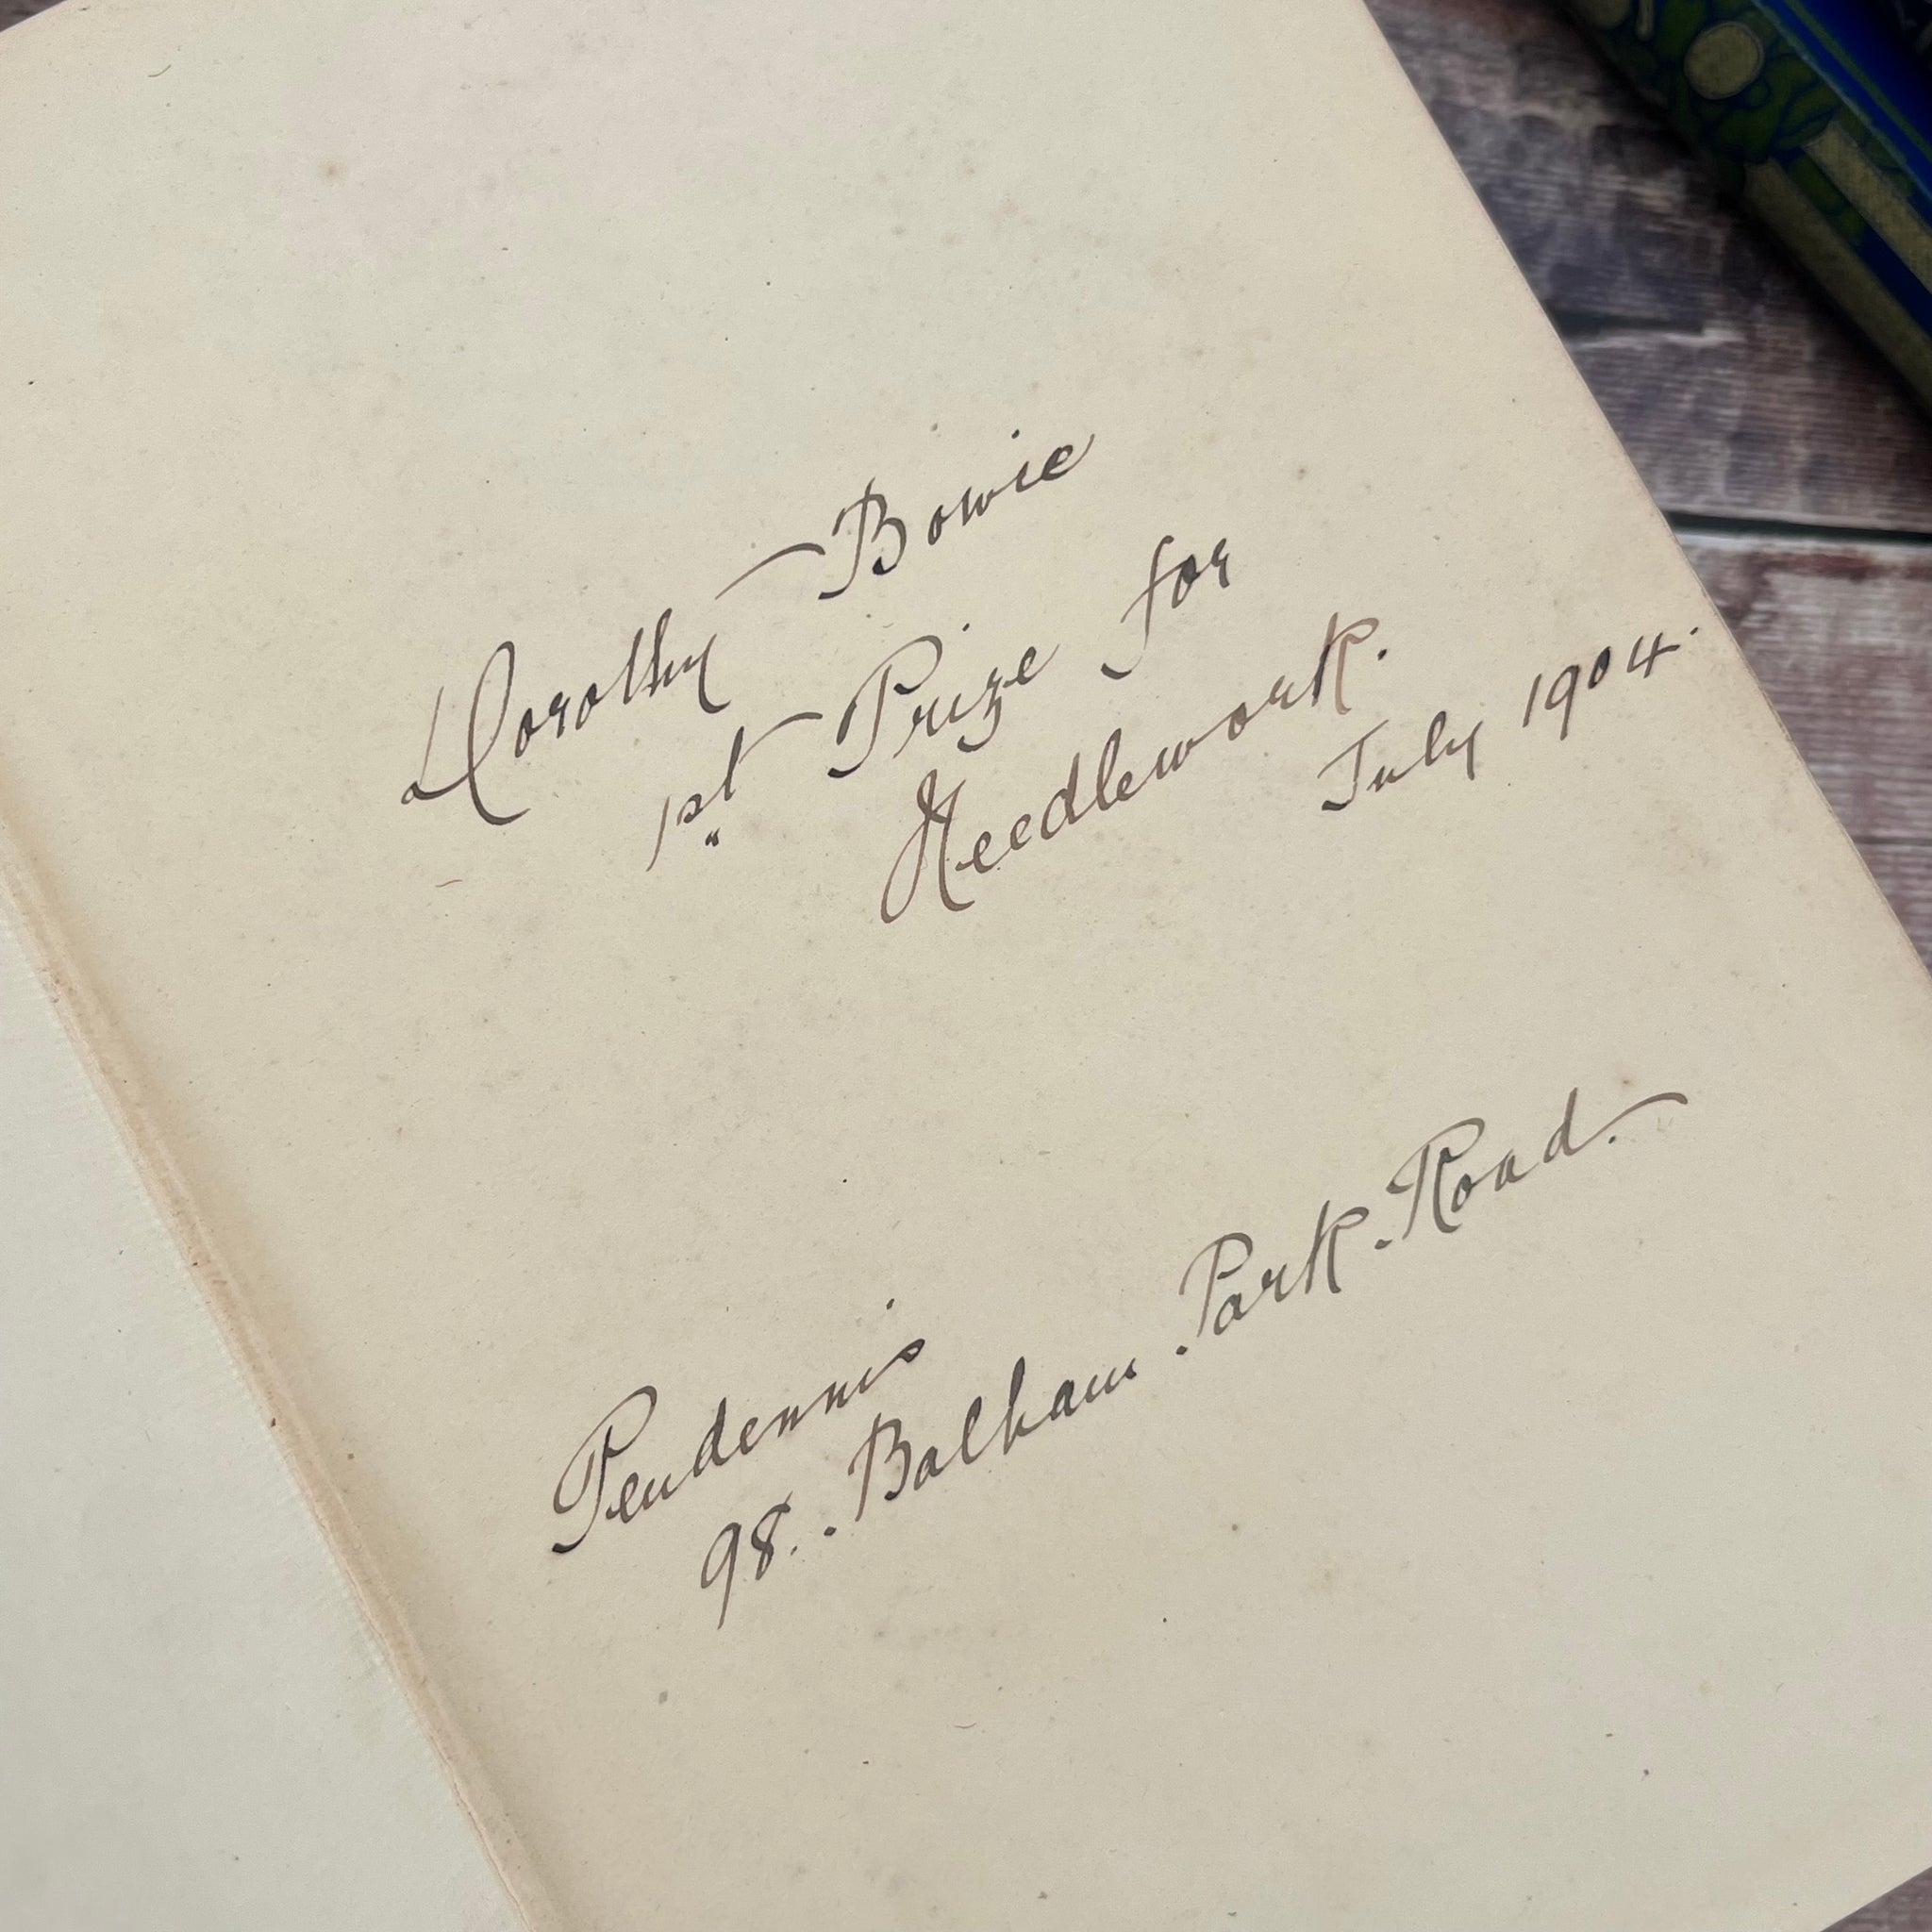 Dorothy Bowie
1st Prize for
Needlework.
July 1904.
Pendennis
98. Balham. Park. Road.